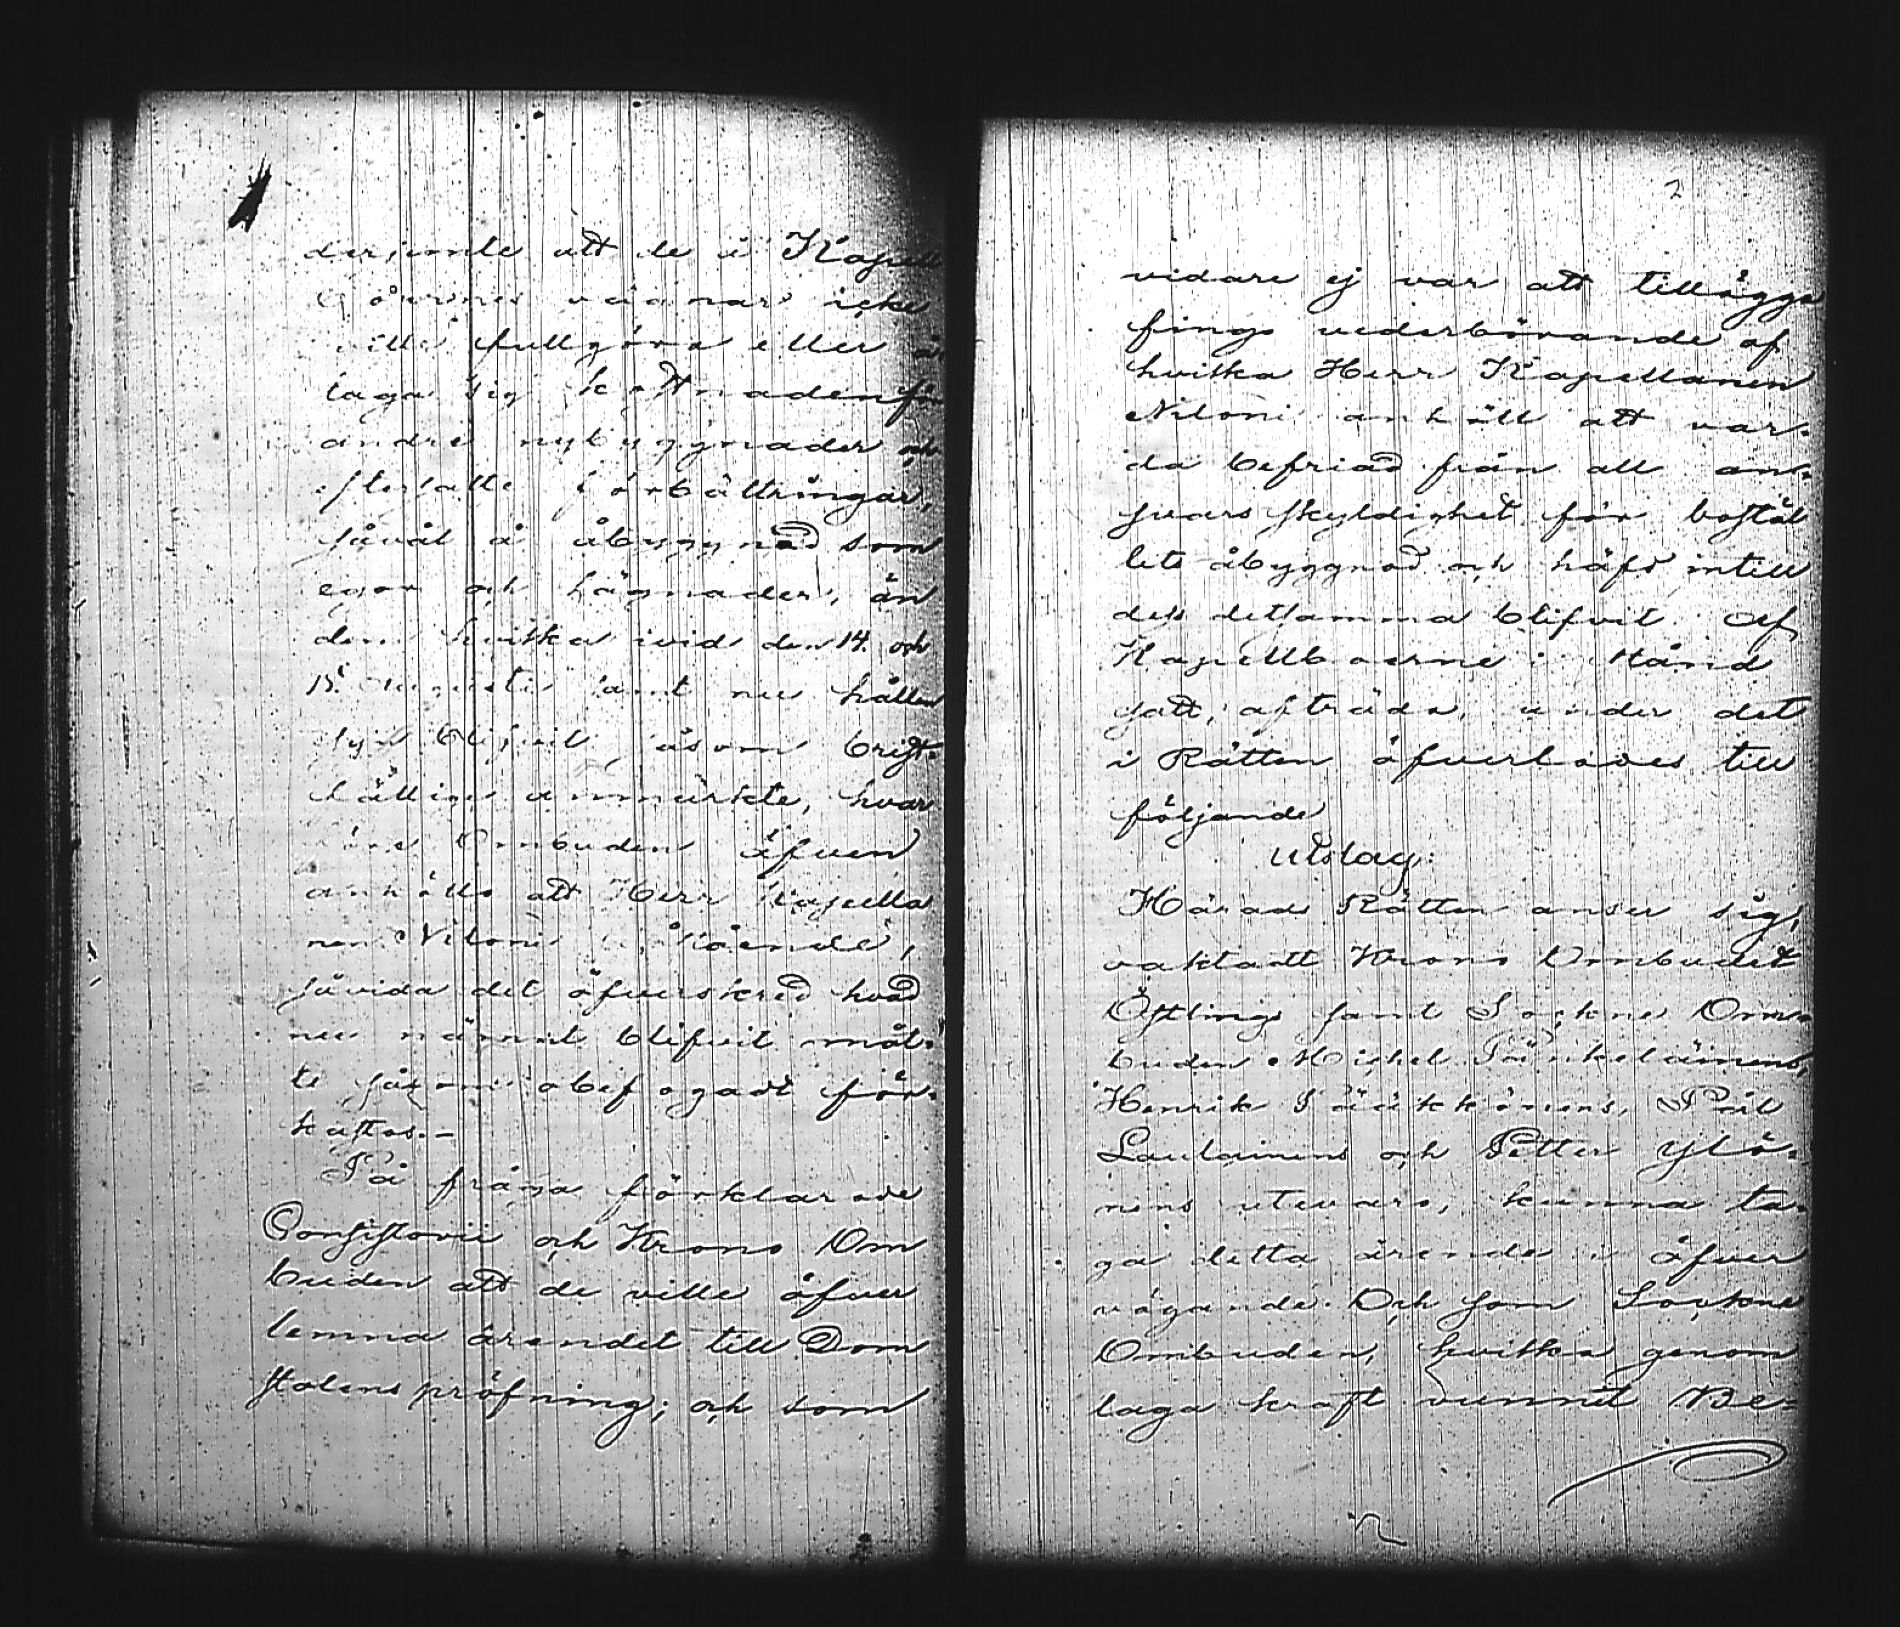 derjemte att de å Kapell
Boernes vägnar icke
ville fullgöra eller å
taga sig kostnaden för
andre nybyggnader och
eftersatte förbättringar,
såväl å åbyggnad som
egor och hägnader, än
dem hvilka vid den 14. och
15. Augusti samt nu hållen
syn blifvit såsom brist-
fällige anmärkte, hvar
före Ombuden äfven
anhöllo att Herr Kapella
nen Niloni yrkående,
såvida det öfverskred hvad
nu nämnt blifvit måt-
te såsom obefogadt för-
kastas.-
På fråga förklarade
Consistorii och Krono Om
buden att de ville öfver
lemna ärendet till Dom
stolens pröfning; och som
2
vidare ej var att tillägga
fingo vederbörande af
hvilka Herr Kapellanen
Niloni anhöll att var-
da befriad från all an-
svars skyldighet för bostäl
lets åbyggnad och häfd intill
dess detsamma blifvit af
Kapellboerne i stånd
satt, afträda, under det
i Rätten öfverlades till
följande
Utslag:
Härads Rätten anser sig,
oaktadt Krono Ombudet
Östlings samt Sockne Om-
buden Michel
Henrik Pääkkönens, Pål
Laulainens och Petter Ylö-
nens utevaro, kunna ta-
ga detta ärende i öfver
vägande. Och som Sockne
Ombuden, hvilka genom
laga kraft vunnit Be-